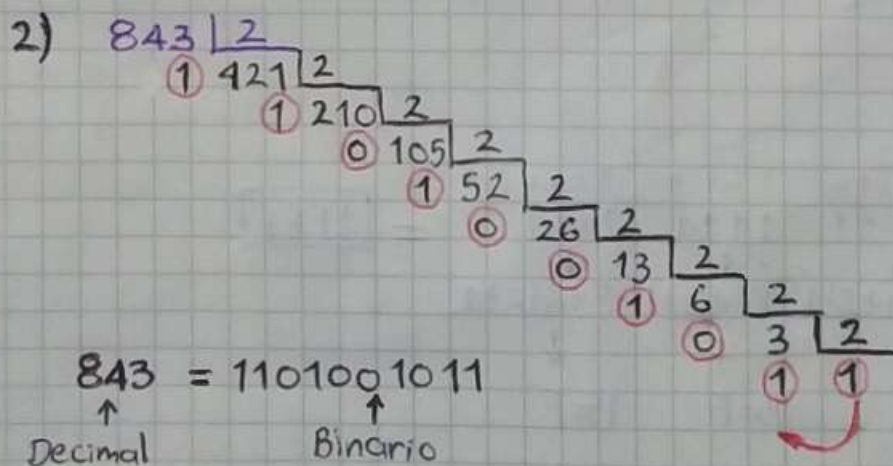 2) 843 2
1 421 2
1 210 2
0 105 2
1 52 2
0 26 2
0 13 2
1 6 2
0 3 2
1 1
843 = 1101001011
↑ ↑
Decimal Binario